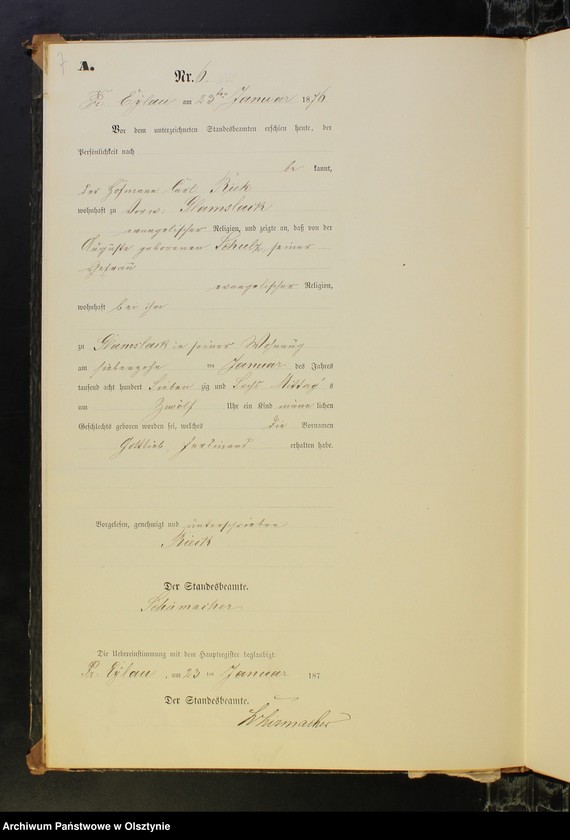 7
A.
Nr. 6
Pr. Eylau am 23ten Januar 1876
Vor dem unterzeichneten Standesbeamten erschien heute, der
Persönlichkeit nach
be kannt,
der Hofmann Carl
wohnhaft zu Vorw.
evangelischer Religion, und zeigte an, daß von der
Auguste geborenen Schulz, seiner
Ehefrau
evangelischer Religion,
wohnhaft bei ihm
zu in seiner Wohnung
am Januar des Jahres
tausend acht hundert Sieben zig und Sechs Mittag s
um Zwölf Uhr ein Kind männ lichen
Geschlechts geboren worden sei, welches die Vornamen
Gottlieb Ferdinand erhalten habe.
Vorgelesen, genehmigt und unterschrieben
Rieck
Der Standesbeamte.
Schumacher
Die Uebereinstimmung mit dem Hauptregister beglaubigt.
Pr. Eylau, am 23 ten Januar 187
Der Standesbeamte.
Schumacher
Archiwum Państwowe w Olsztynie